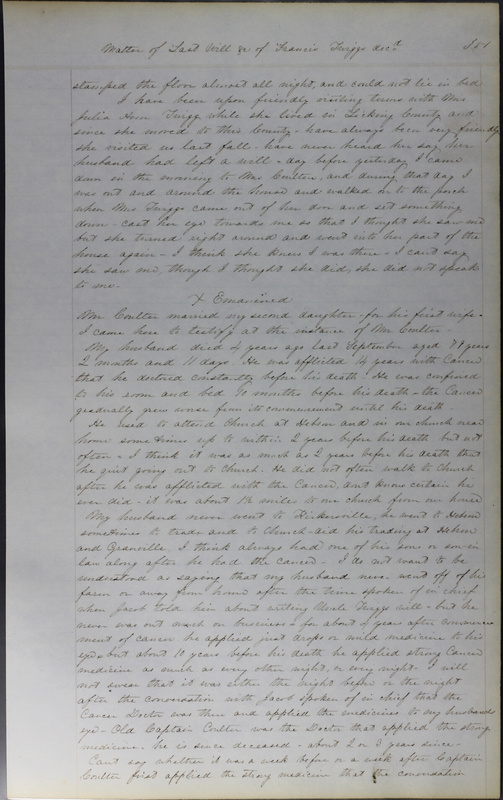 Matter of Last Will &c of Francis Twiggs decd
stamped the floor almost all night, and could not lie in bed.
I have been upon friendly visiting terms with Mrs
Julia Ann Twigg while she lived in Licking County and
since she moved to this County - have always been very friendly
she visited us last fall - have never heard her say her
husband had left a will - day before yesterday I came
down in the morning to Mrs Coulter, and during that day I
was out and around the house and walked on to the porch
when Mrs Twiggs came out of her door and set something
down - cast her eye towards me so that I thought she saw me
but she turned right around and went into her part of the
house again - I think she knew I was there - I cant say
she saw me, though I thought she did, she did not speak
to me.
X Examined
Mr Coulter married my second daughter - for his first wife -
I came here to testify at the instance of Mr Coulter -
My husband died 4 years ago last September aged years
2 months and 11 days - He was afflicted 14 years with Cancer
that he doctored constantly before his death - He was confined
to his room and bed 10 months before his death - the Cancer
gradually grew worse from its commencement until his death -
He used to attend Church at Hebron and in our church near
home sometimes up to within 2 years before his death but not
often - I think it was as much as 2 years before his death that
he quit going out to Church. He did not often walk to Church
after he was afflicted with the Cancer, dont know certain he
ever did - it was about 1½ miles to our church from our house
My husband never went to Kirkersville, he went to Hebron
sometimes to trade and to Church - did his trading at Hebron
and Granville, I think always had one of his sons or son-in
law along after he had the cancer - I do not want to be
understood as saying that my husband never went off of his
farm or away from home after the time spoken of in chief
when Jacob told him about writing Uncle Twiggs will - but he
never was out much on business - for about years after commence
ment of cancer he applied just drops or mild medicine to his
eye - but about 10 years before his death he applied strong Cancer
medicine as much as every other night, or every night. I will
not swear that it was either the night before or the night
after the conversation with Jacob spoken of in chief that the
Cancer Doctor was there and applied the medicine to my husbands
eye - Old Captain Coulter was the Doctor that applied the strong
medicine - he is since deceased - about 2 or 3 years since -
Cant say whether it was a week before or a week after Captain
Coulter first applied the strong medicine that the conversation